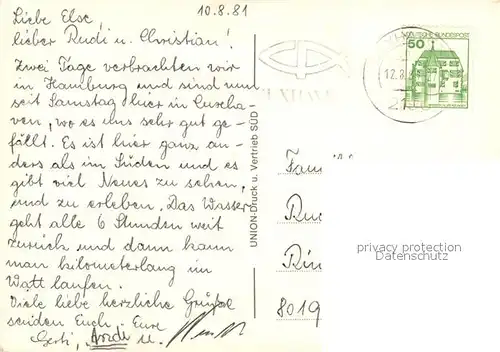 10.8.81
Liebe Else,
lieber Rudi u. Christian!
Zwei Tage verbrachten wir
in Hamburg und sind nun
seit Samstag hier in Cuxha-
ven, wo es uns sehr gut ge-
fällt. Es ist hier ganz an-
ders als im Süden und es
gibt viel Neues zu sehen,
und zu erleben. Das Wasser
geht alle 6 Stunden weit
zurück und dann kann
man kilometerlang im
Watt laufen.
Viele liebe herzliche Grüße
senden Euch, Eure
Gerti, Andi u.
UNION-Druck u. Vertrieb SÜD
DEUTSCHE BUNDESPOST
50
12.8.
Fam
Ru
Rin
8019
privacy protection
Datenschutz